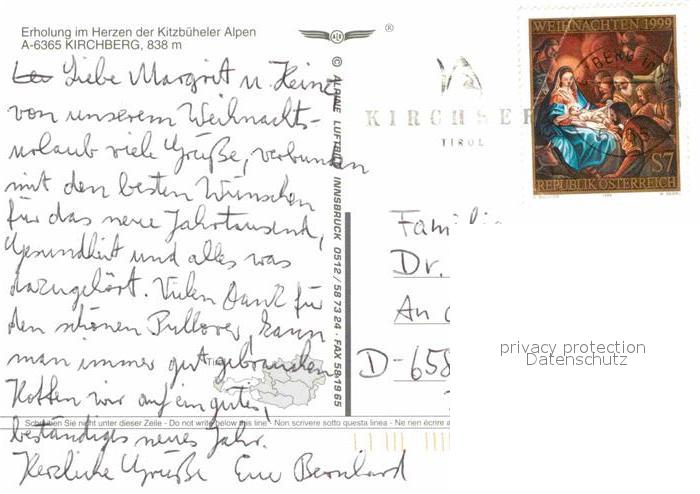 Erholung im Herzen der Kitzbüheler Alpen
A-6365 KIRCHBERG, 838 m
®
Liebe Margrit u. Heinz
von unserem Weihnachts-
urlaub viele Grüße, verbunden
mit den besten Wünschen
für das neue Jahrtausend,
Gesundheit und alles was
dazugehört. Vielen Dank für
den schönen Pullover, kann
man immer gut gebrauchen
Hoffen wir auf ein gutes,
Schreiben Sie nicht unter dieser Zeile - Do not write below this line - Non scrivere sotto questa linea - Ne rien écrire
beständiges neues Jahr.
Herzliche Grüße Eure Bernhard
© ALPINE LUFTBILD INNSBRUCK 0512 / 58 73 24 · FAX 58 19 65
KIRCHBER
TIROL
WEIHNACHTEN 1999
S7
REPUBLIK ÖSTERREICH
Familie
Dr.
An
D-658
privacy protection
Datenschutz